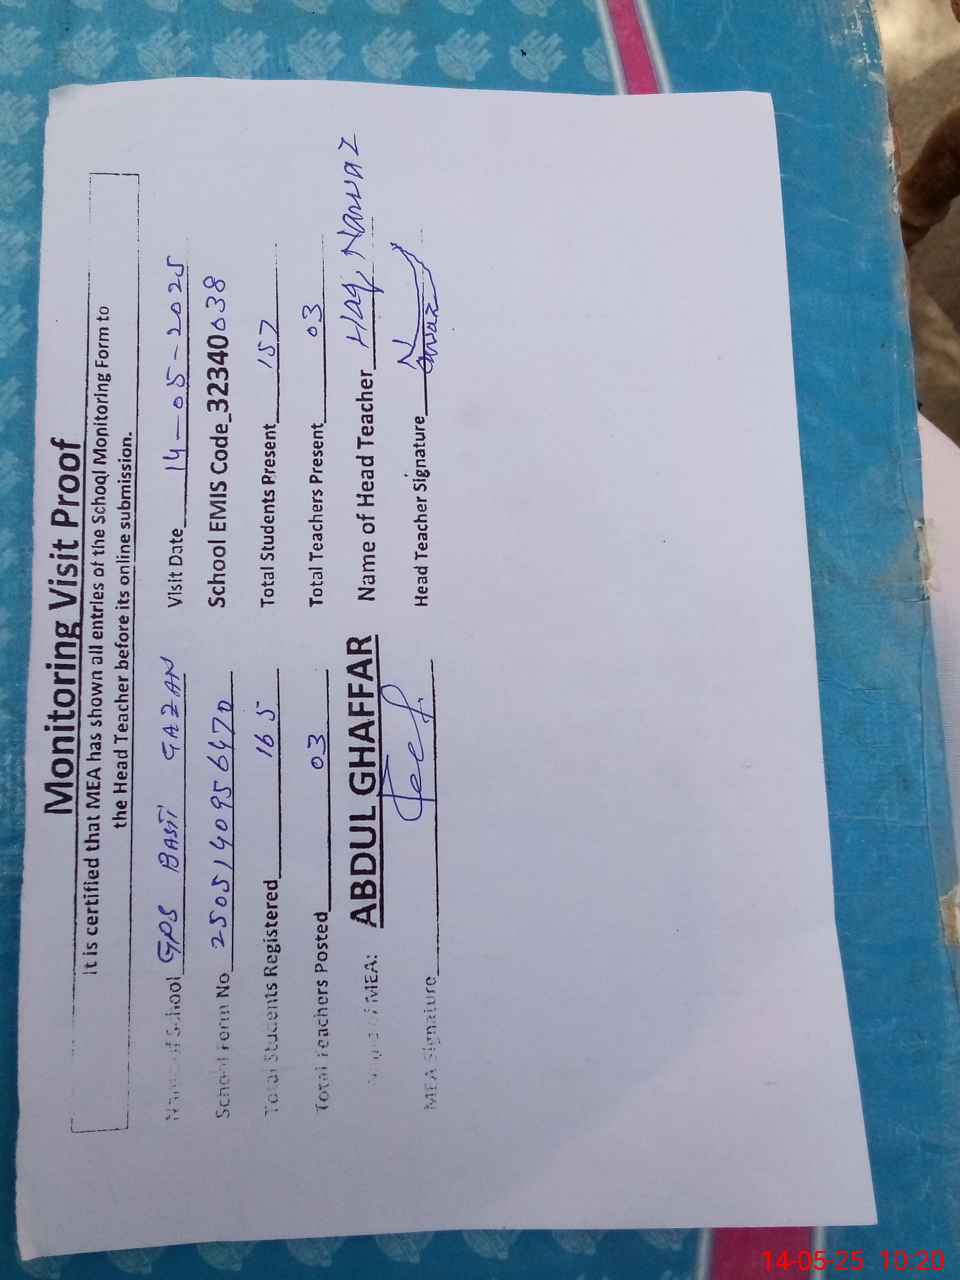 Monitoring Visit Proof
It is certified that MEA has shown all entries of the School Monitoring Form to
the Head Teacher before its online submission.
Name of School GPS BASTI GAZAN Visit Date 14-05-2025
School Form No 2505140956470 School EMIS Code_32340038
Total Students Registered 165 Total Students Present 157
Total Teachers Posted 03 Total Teachers Present 03
Name of MEA: ABDUL GHAFFAR Name of Head Teacher Haq Nawaz
MEA Signature Head Teacher Signature Nawaz
14-05-25 10:20